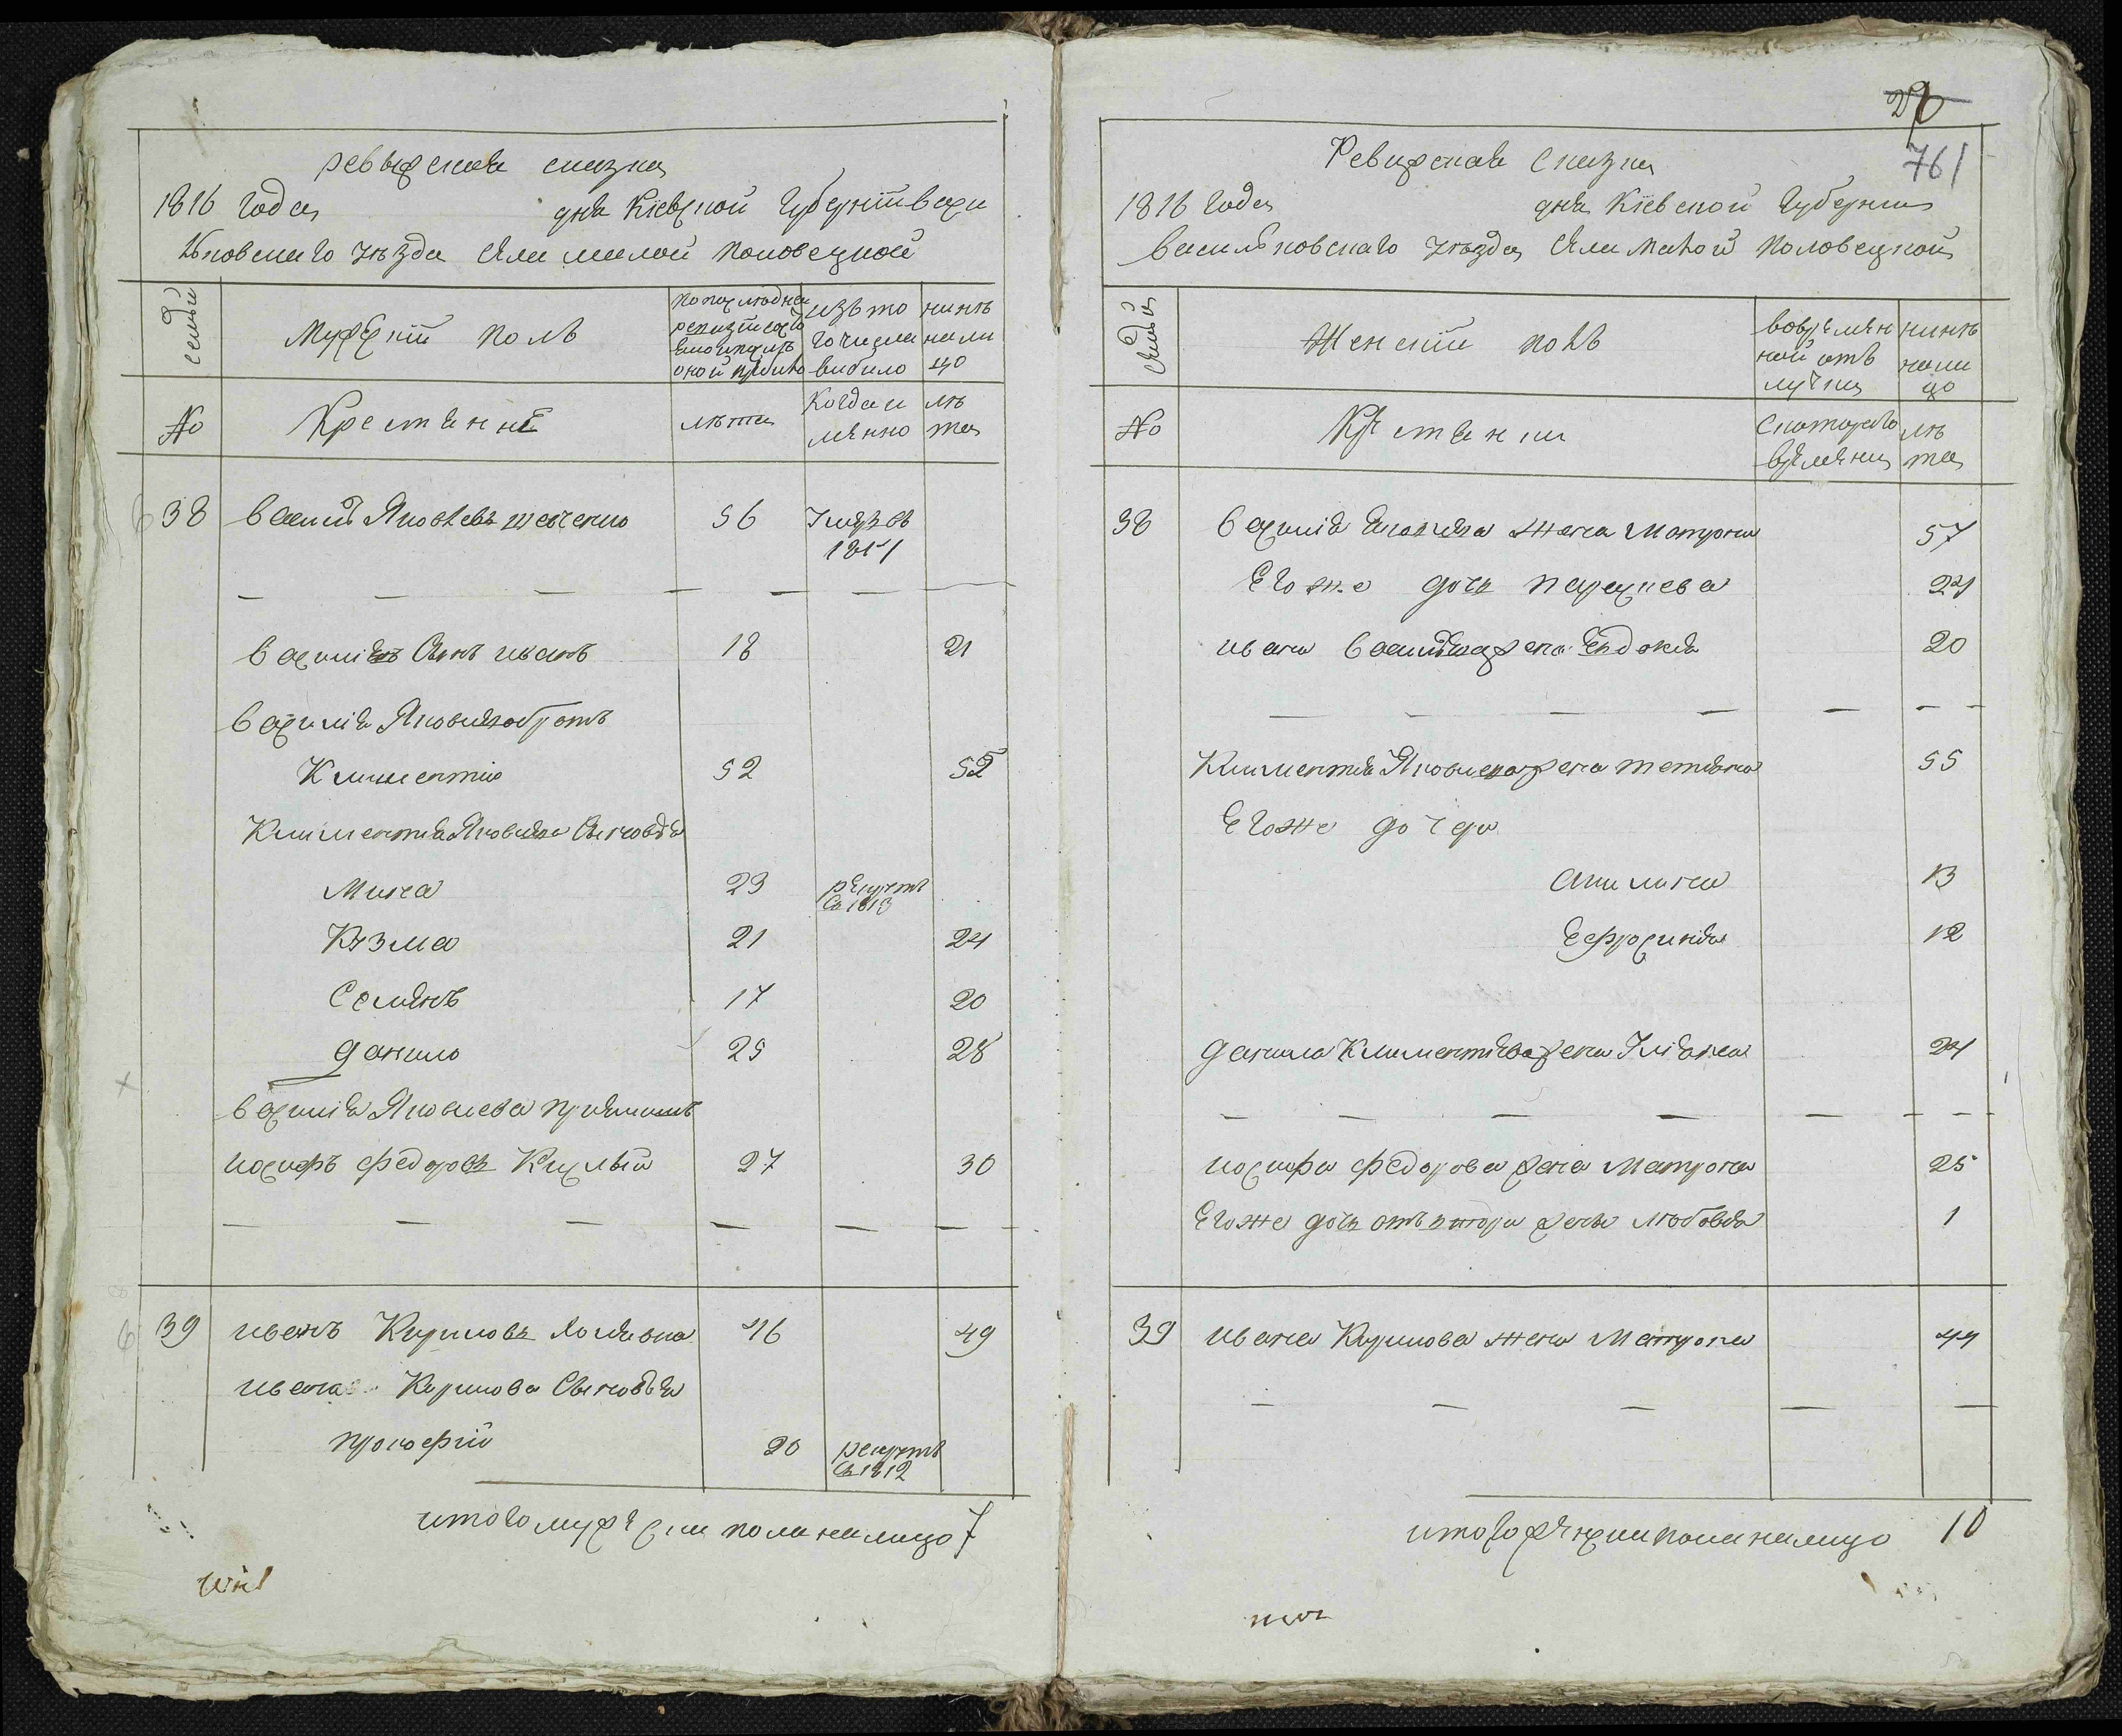 ревызская сказка
1816 года дня Кіевской Губерніи васи
льковскаго уѣзда села малой половецкой
семьи
Мужескій полъ
по последней ревизіи состояло и после оной прибыло
изъ того числа выбыло
нынѣ на лицо
№
Крестьянне
лѣта
Когда именно
лѣта
38 василій Яковлевъ шевченко 56 Умеръ въ 1814
василіевъ Сынъ иванъ 18 21
василія Яковлева братъ
Климентій 52 55
Климентія Яковлева Сыновья
Мина 23 рекрутъ Съ 1813
Кузма 21 24
Семенъ 17 20
данило 25 28
василія Яковлева приемышъ
иосифъ федоровъ Кислый 27 30
39 иванъ Кириловъ 46 49
ивана Кирилова Сыновья
прокофій 20 рекрутъ Съ 1812
итого мужеска пола налицо 7
28
761
Ревизская Сказка
1816 года дня Кіевской Губерніи
васильковскаго уѣзда села малой половецкой
семьи
Женскій полъ
во временной отлучки
нынѣ на лицо
№
Крестьянки
Скоторого времени
лѣта
38 василія яковлева жена Матрона 57
Егоже дочь параскева 24
ивана василіева жена Евдокия 20
Климентія Яковлева жена татияна 55
Егоже дочери
акилина 13
Ефросинія 12
данила Климентіева жена Улияна 24
иосифа федорова жена Матрона 25
Егоже дочь отъ жены любовья 1
39 ивана Кирилова жена Матрона 44
итого женска пола налицо 10